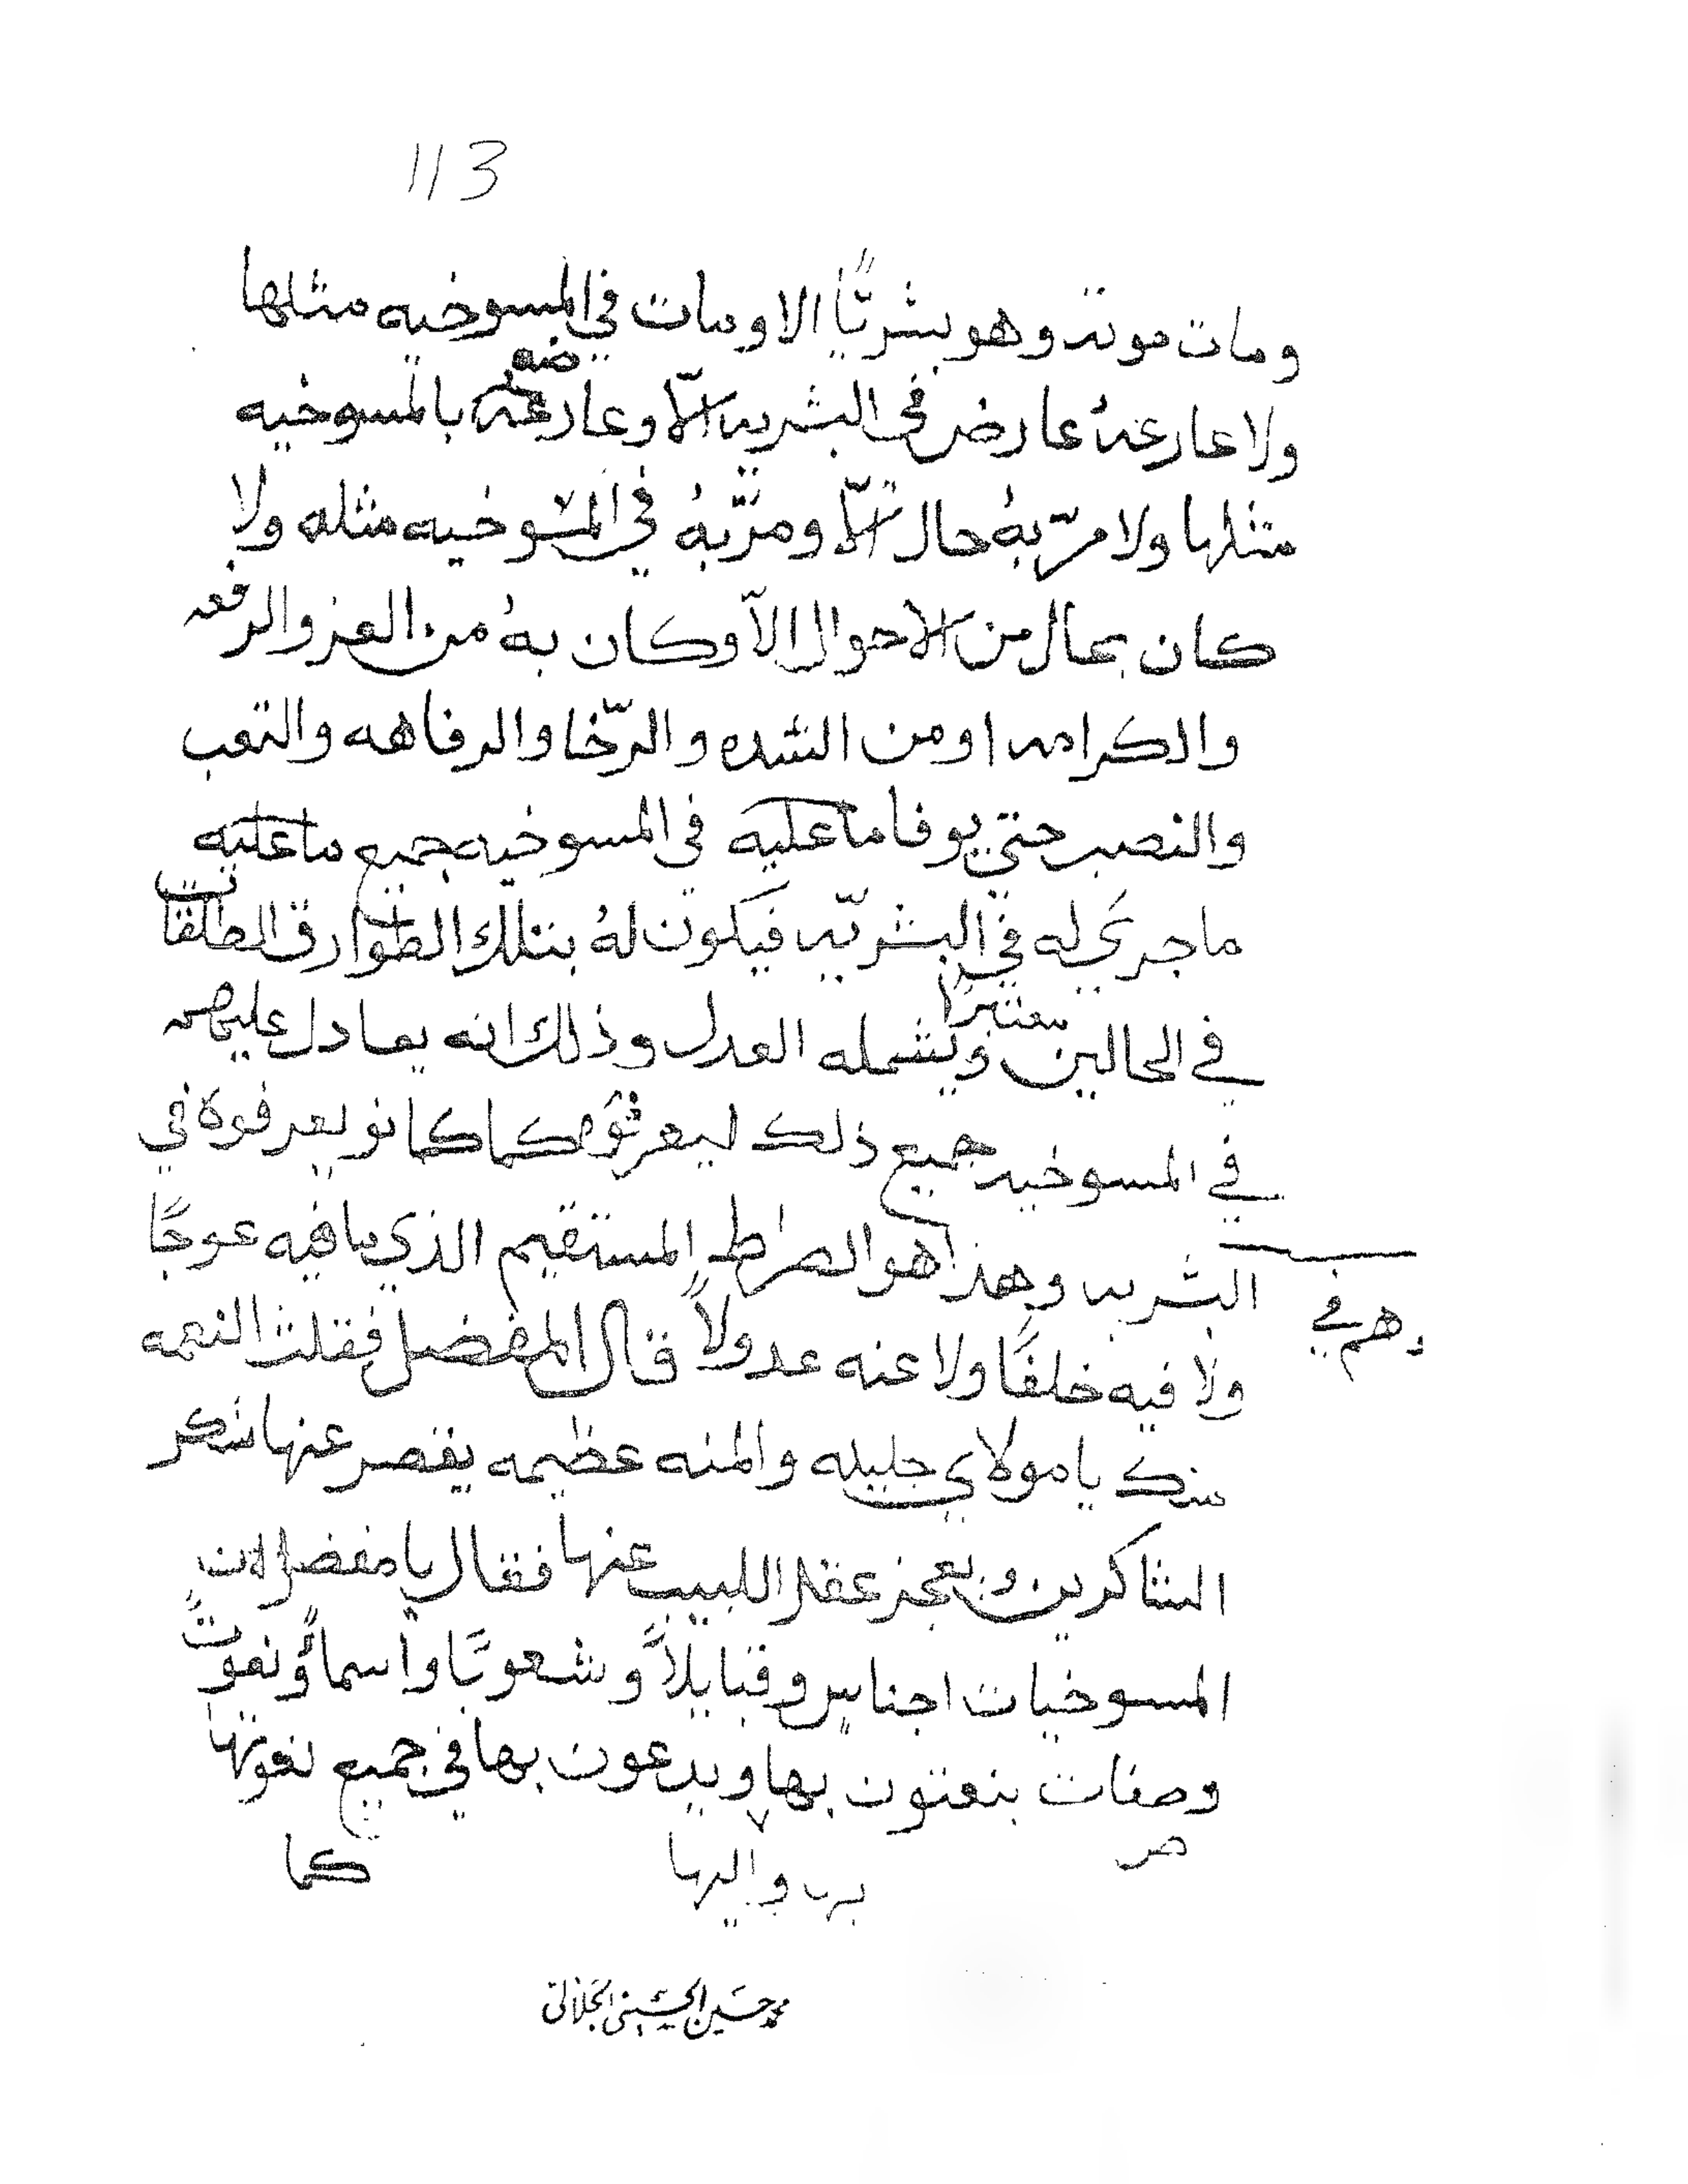 113
ومات موتة وهو بشريًا الا ومات في المسوخيه مثلها
ولا عارضهُ عارض في البشريه الّا وعارضه بالمسوخيه
مثلها ولا مرّ بهُ حال الّا ومرّ بهُ في المسوخيه مثله ولا
كان بحال من الاحوال الّا وكان بهُ من العز والرفعه
والكرامه او من الشده والرّخا والرفاهه والتعب
والنصب حتي يوفا ما عليه في المسوخيه جميع ما عليه
ما جري له في البشريّه فيكون لهُ بتلك الطوارق المطلقات
معتبرًا
في الحالين ويشمله العدل وذلك انه يعادل عليهم
في المسوخيه جميع ذلك ليعرفوه كما كانو يعرفوه في
البشريه وهذا هو الصراط المستقيم الذي ما فيه عوجًا
وهم في
ولا فيه خلفًا ولا عنه عدولاً قال المفضل فقلت النعمه
منك يا مولاي جليله والمنه عظيمه يقصر عنها شكر
الشاكرين ويعجز عقل اللبيب عنها فقال يا مفضل ان
المسوخيات اجناسٍ وقبايلاً وشعوبًا واسماً ونعوتً
وصفات ينعتون بها ويدعون بها في جميع نعوتها
بها واليها
كما
محمد حسين الحسيني الجلالي